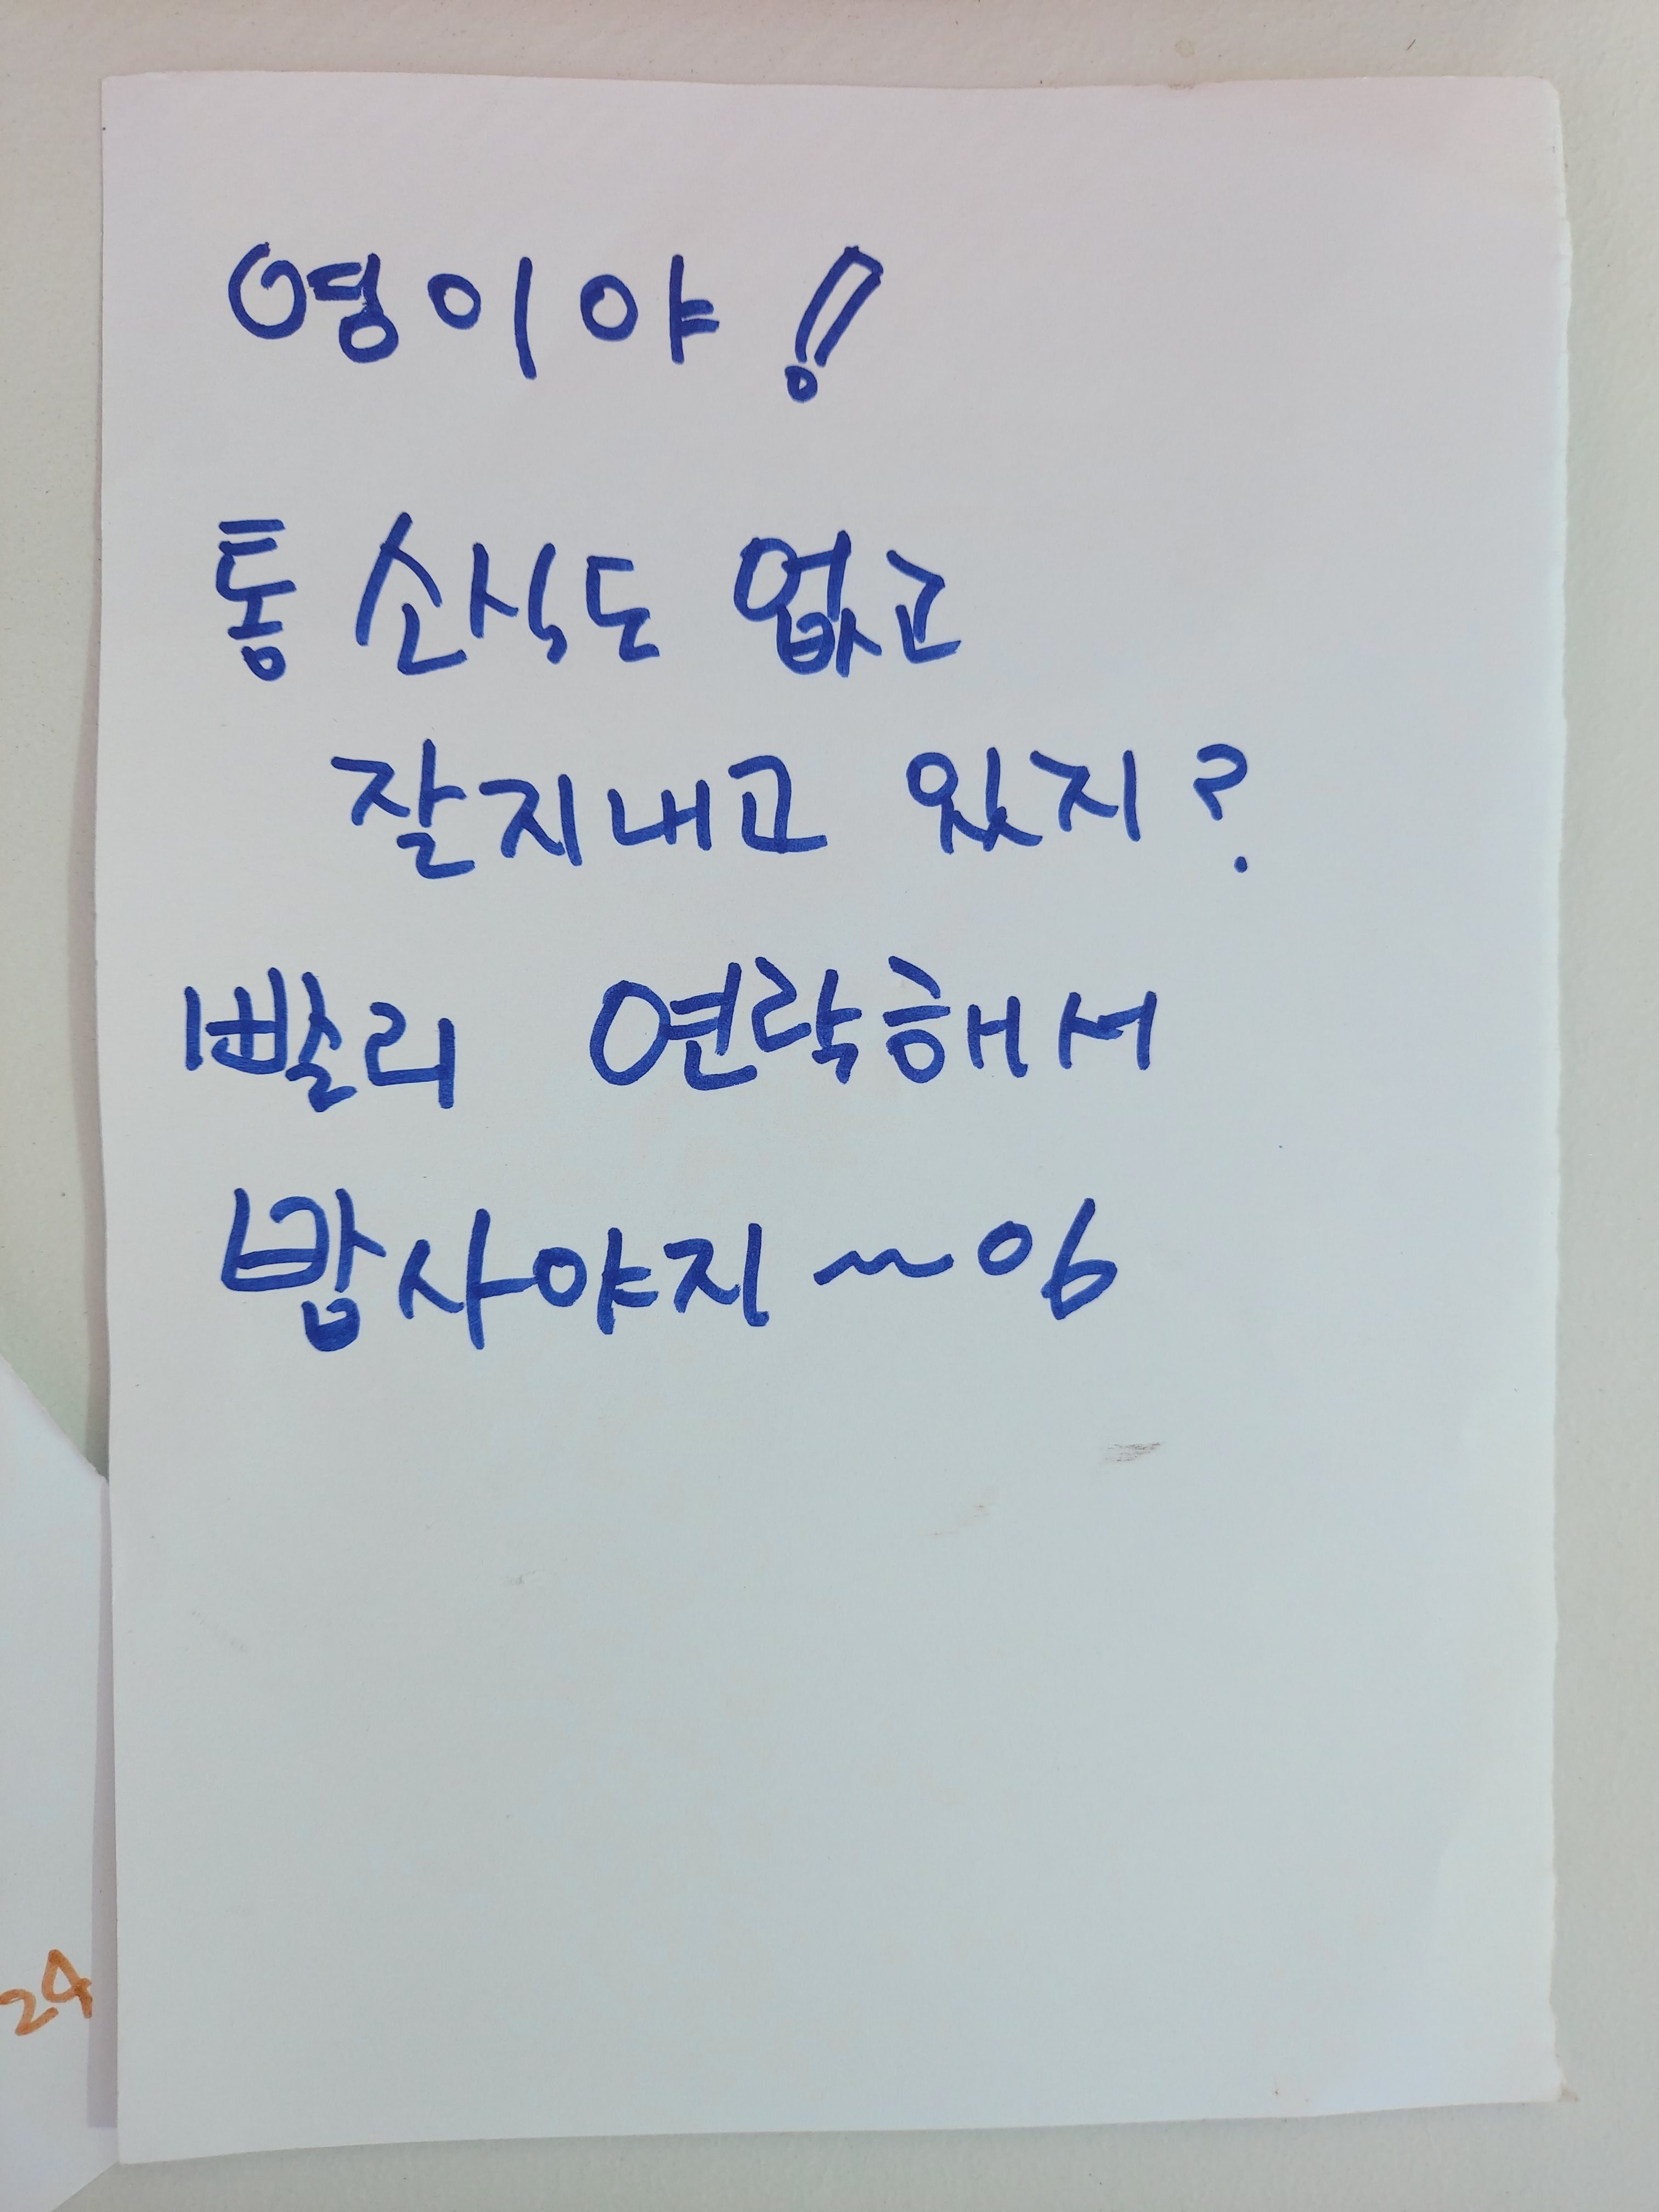 영이야!
통 소식도 없고
잘지내고 있지?
빨리 연락해서
밥사야지~06
24